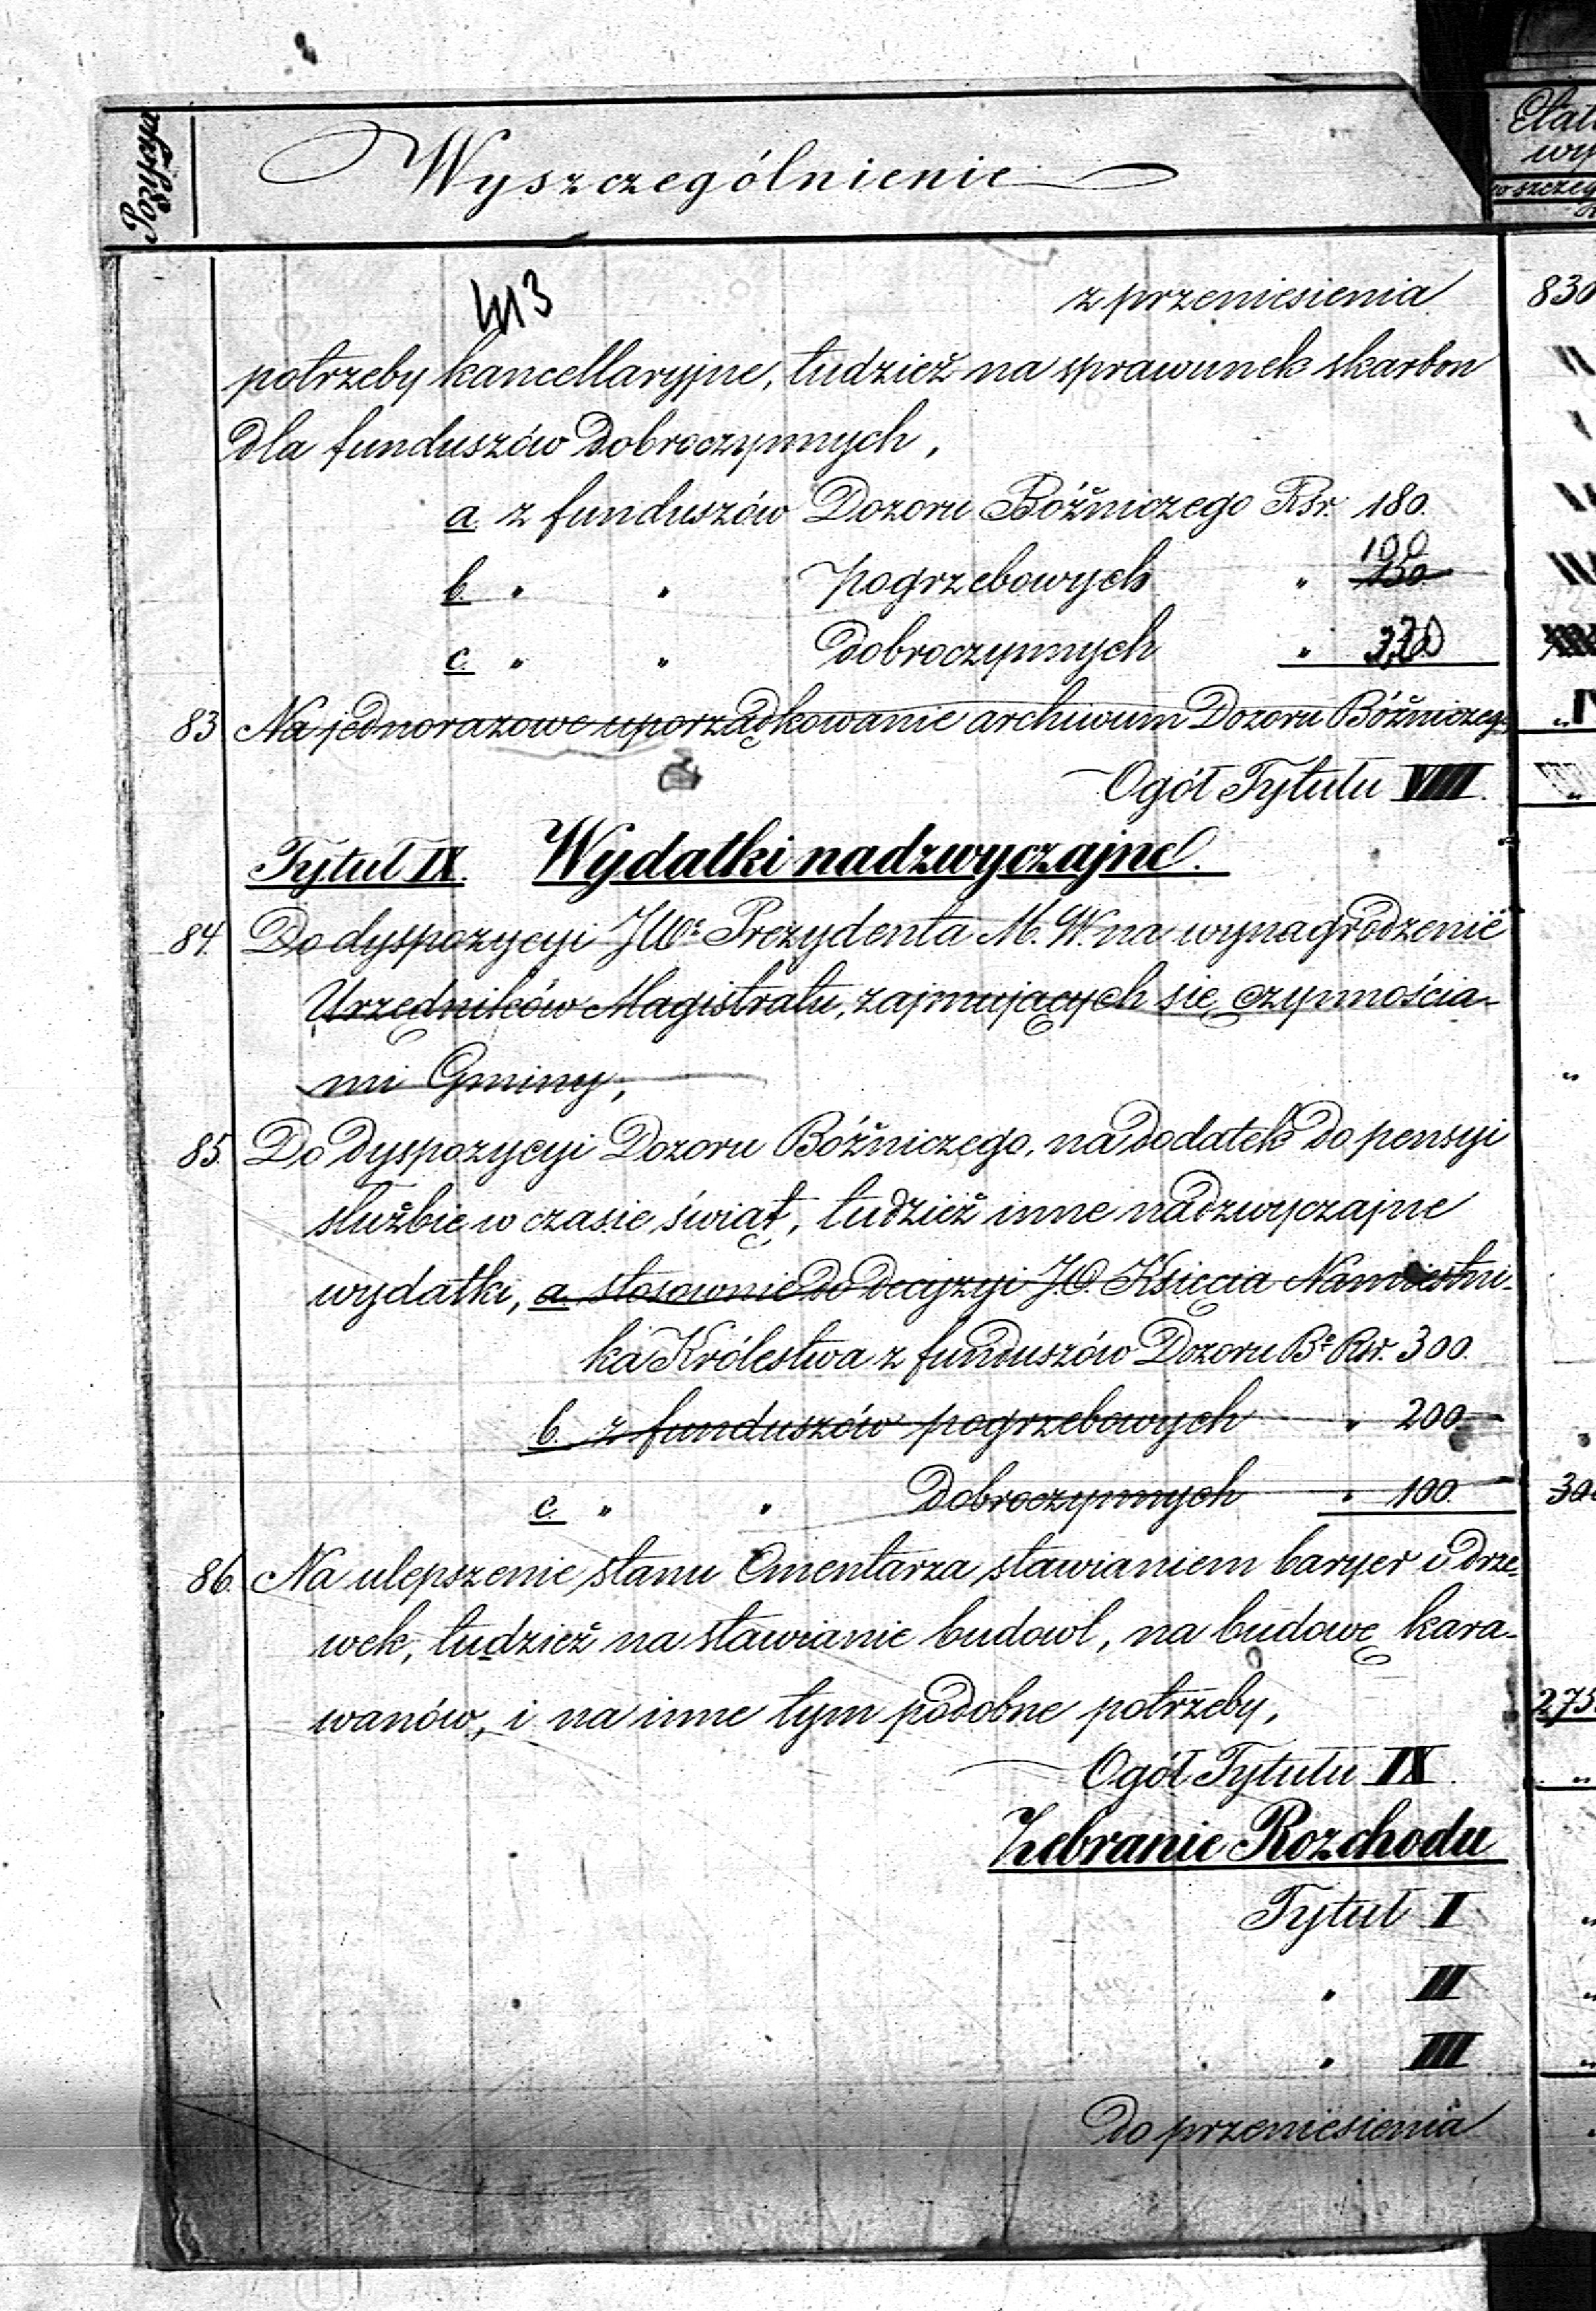 Pozycya
Wyszczególnienie
413
z przeniesienia 830
potrzeby kancellaryjne, tudzież na sprawunek skarbon
dla funduszów dobroczynnych,
a. z funduszów Dozoru Bóżniczego Rsr. 180.
100
b. " " pogrzebowych " 150
c. " " dobroczynnych "
83. Na jednorazowe uporządkowanie archiwum Dozoru Bóżniczego
Ogół Tytułu VIII.
Tytuł IX. Wydatki nadzwyczajne.
84. Do dyspozycyi JWo Prezydenta M. W. na wynagrodzenie
Urzędników Magistratu, zajmujących się czynnościa-
mi Gminy,
85. Do dyspozycyi Dozoru Bóżniczego, na dodatek do pensyi
służbie w czasie świąt, tudzież inne nadzwyczajne
wydatki, a. stosownie do decyzyi J.O. Księcia Namiestni-
ka Królestwa z funduszów Dozoru Bo Rsr. 300.
b. z funduszów pogrzebowych " 200
c. " " dobroczynnych " 100.
86. Na ulepszenie stanu Cmentarza stawianiem baryer i drze-
wek, tudzież na stawianie budowl, na budowę kara-
wanów, i na inne tym podobne potrzeby, 275
Ogół Tytułu IX.
Zebranie Rozchodu
Tytuł I
" II
" III
do przeniesienia